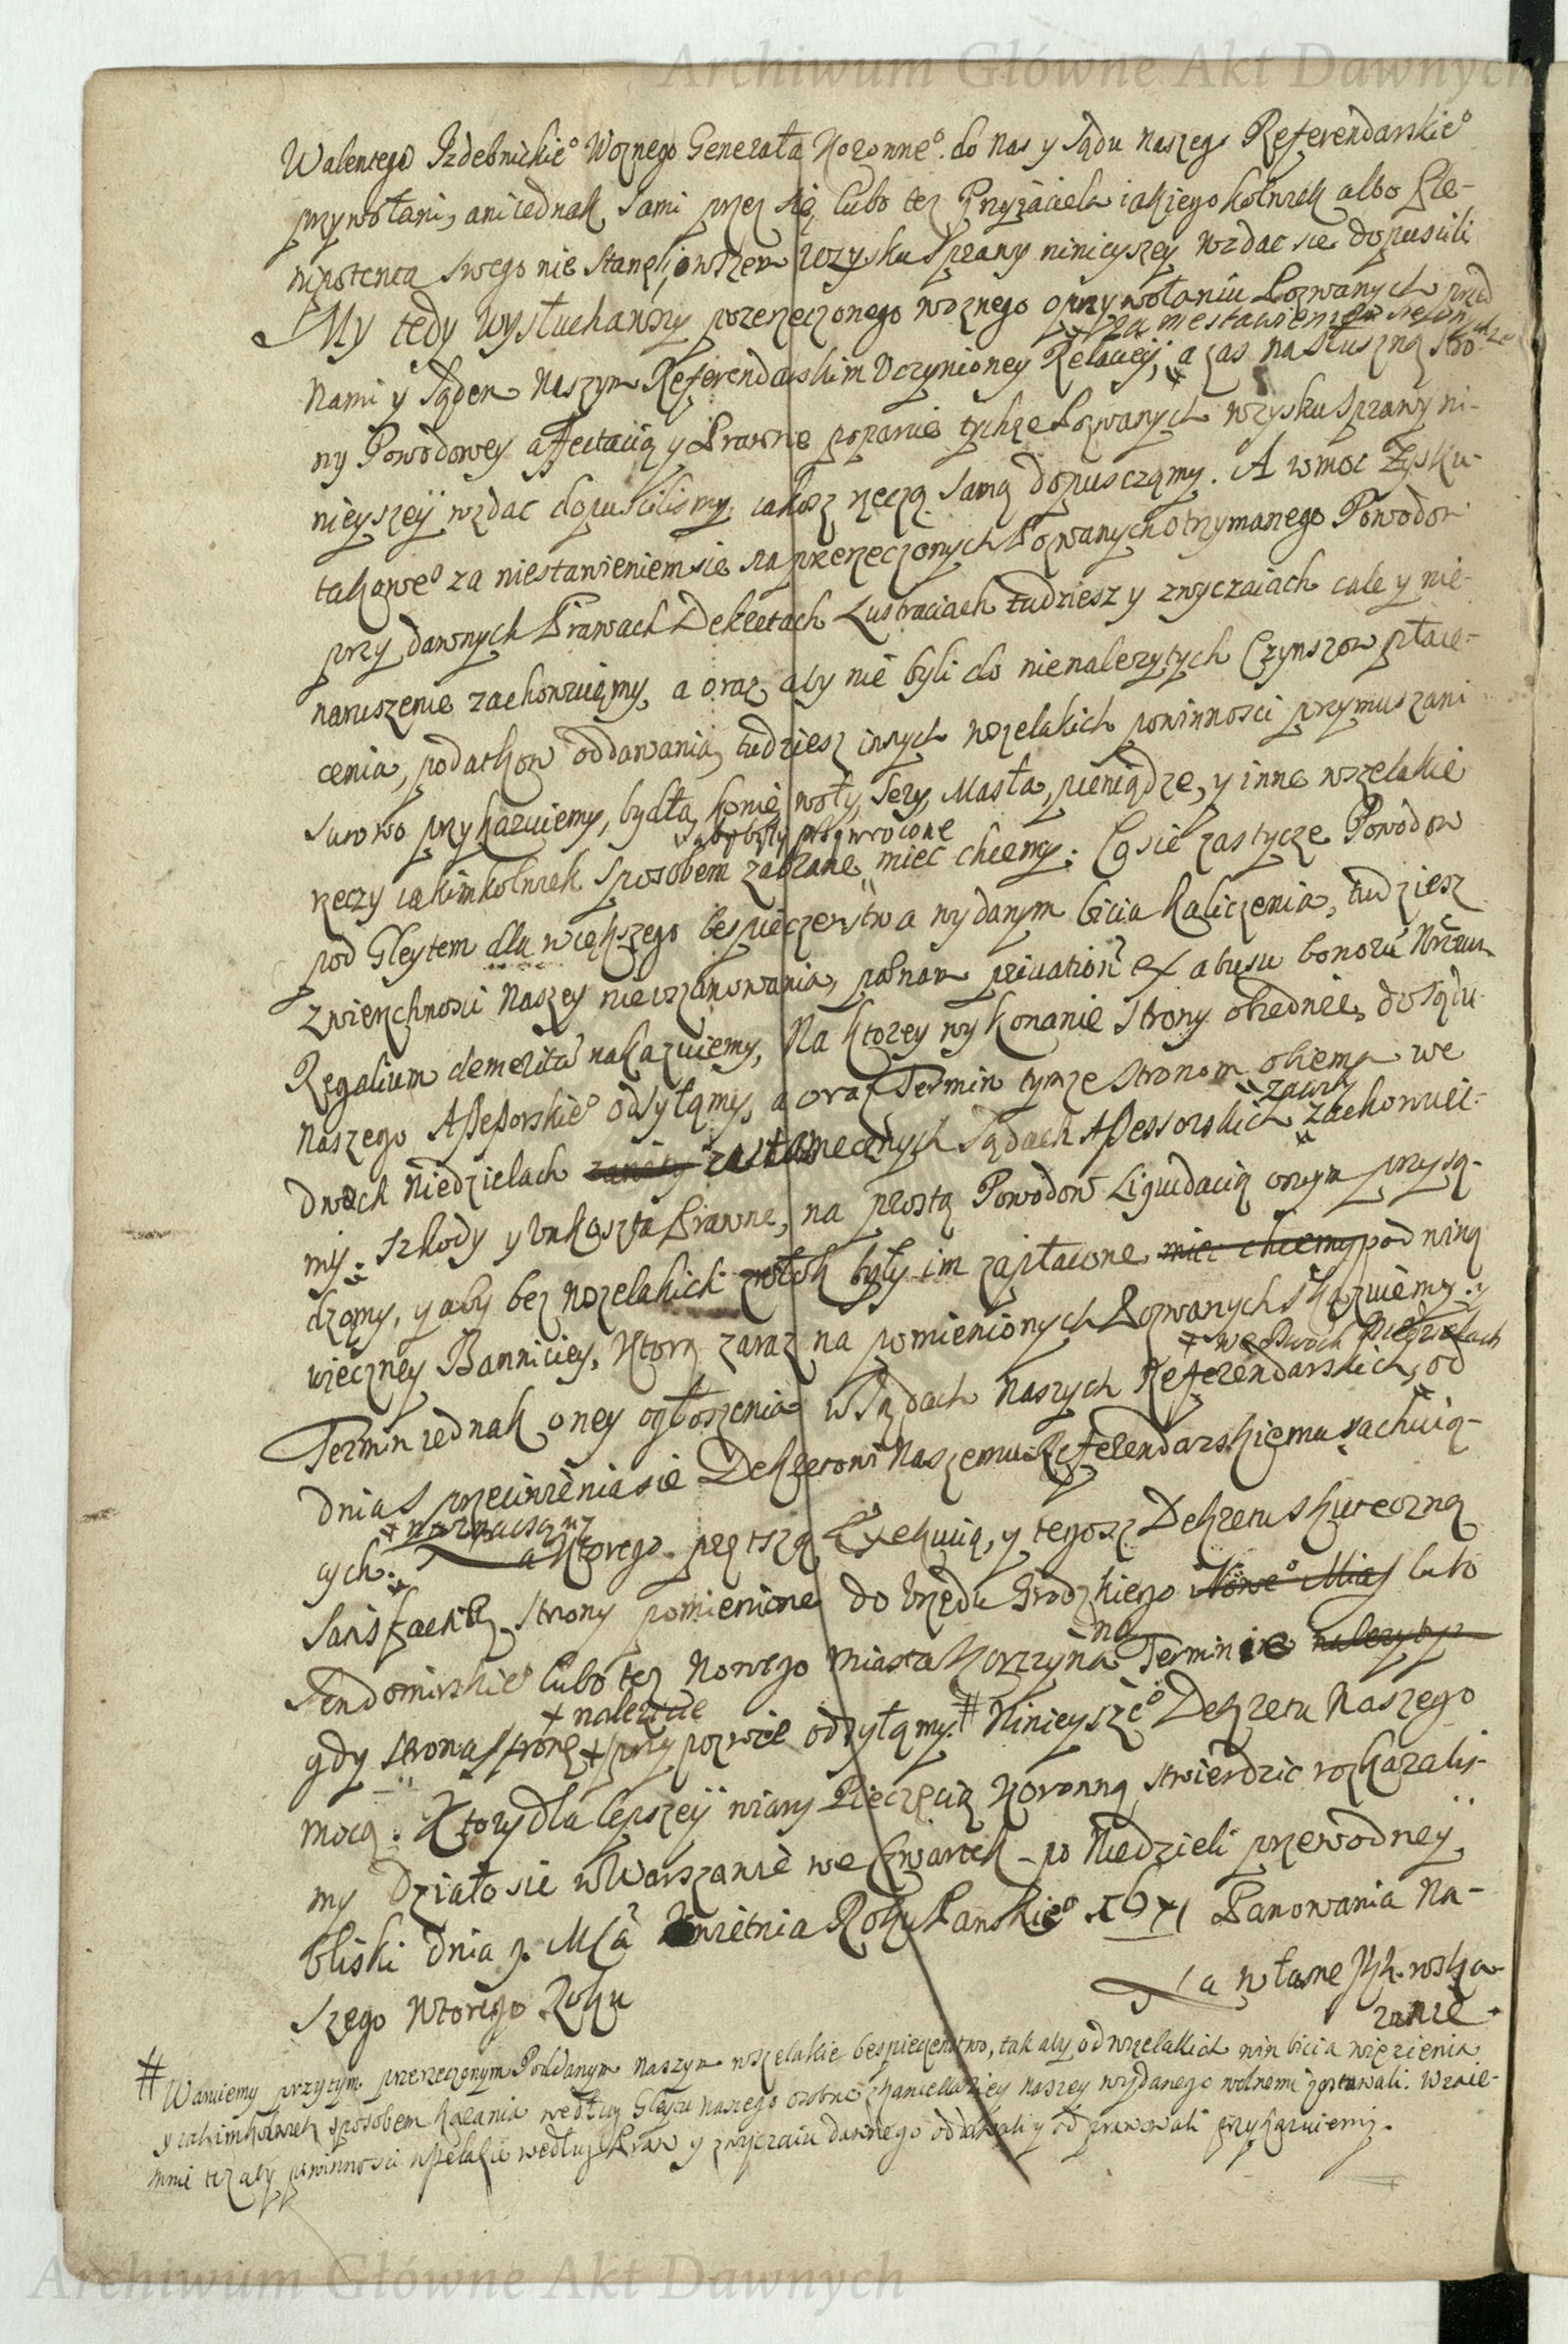 Archiwum Główne Akt Dawnych
Walentego Izdebnickie° Woznego Generała Koronne°. do Nas y Sądu Naszego Referendarskie°
przywołani, ani iednak sami przez się, lubo tez Przyiaciela iakiego kolwiek albo Ple-
nipotenta swego nie stanęli, owszem wzysku sprawy ninieyszey wzdac sie dopuscili
My tedy wysłuchawszy pozerzeczonego woznego o przywołaniu Pozwanych przed
za niestawieniem sie
Nami y Sądem Naszym Referendarskim Uczynioney Relaciey, a zas na słuszną stro-
ny Powodowey affectacią y Prawne poparcie tychze Pozwanych wzysku sprawy ni-
nieyszey wzdac dopuscilismy, iakosz rzeczą samą dopusczamy. A w moc Zysku
takowe° za niestawieniem sie na przerzeczonych Pozwanych otrzymanego Powodow
przy dawnych Prawach Dekretach Lustraciach tudziesz y zwyczaiach cale y nie-
naruszenie zachowuiemy, a oraz aby nie byli do nienalezytych Czynszow płace-
cenia, podatkow oddawania, tudziesz inszych wszelakich powinnosci przymuszani
surowo przykazuiemy, bydła, konie, woły, sery, Masła, pieniądze, y inne wszelakie
aby były przywrocone
rzeczy iakimkolwiek sposobem zabrane miec chcemy. Co sie zas tycze Powodow
pod Gleytem dla większego bespieczenstwa wydanym bicia kaliczenia, tudziesz
zwierzchnosci Naszey nieuszanowania, pœnam privation. ex abusu bonorũ Nrorum
Regalium demeritã nakazuiemy, Na ktorey wykonanie strony obiedwie, do Sądu
Naszego Assessorskie° odsyłamy, a oraz Termin tymze stronom obiema we
zawity
dwoch Niedzielach w Sądach Assessorskich zachowuie-
my. Szkody y Unkoszta Prawne, na prostą Powodow Liquidacią onym przysą-
dzamy, y aby bez wszelakich zwłok były im zapłacone miec chcemy pod winą
wieczney Banniciey, Ktorą zaraz na pomienionych Pozwanych skazuiemy. y
we dwoch Niedzielach
Termin iednak oney ogłoszenia w Sądach Naszych Referendarskich, od
dnia sprzeciwienia sie Dekretowi Naszemu Referendarskiemu rachuią-
cych. naznaczamy
a Ktorego prętszą Exekucią, y tegosz Dekretu skuteczną
satisfactią strony pomienione do Urzędu Grodzkiego Nowe° Mias lubo
Sendomirskie° lubo tez Nowego Miasta Korczyna na Terminie nalezytym
nalezycie
gdy strona stronę przypozwie odsyłamy. # Ninieysze° Dekretu Naszego
mocą. Ktory dla lepszey wiary Pieczęcią Koronną stwierdzic rozkazalis-
my Działo sie w Warszawie we Czwartek po Niedzieli przewodney
bliski dnia 9. Mca Kwietnia Roku Panskie° 1671 Panowania Na-
szego Wtorego Roku
Na własne JKM. roska-
zanie.
# Waruiemy przytym przerzeczonym Poddanym Naszym wszelakie bespieczenstwo, tak aby od wszelakich win bicia więzienia
y iakimkolwiek sposobem karania według Gleytu Naszego osobno z kancellariey naszey wydanego wolnemi zostawali. Wzaie-
mnie tez aby powinnosci wszelakie według Praw y zwyczaiu dawnego oddawali y odprawowali przykazuiemy.
Archiwum Główne Akt Dawnych